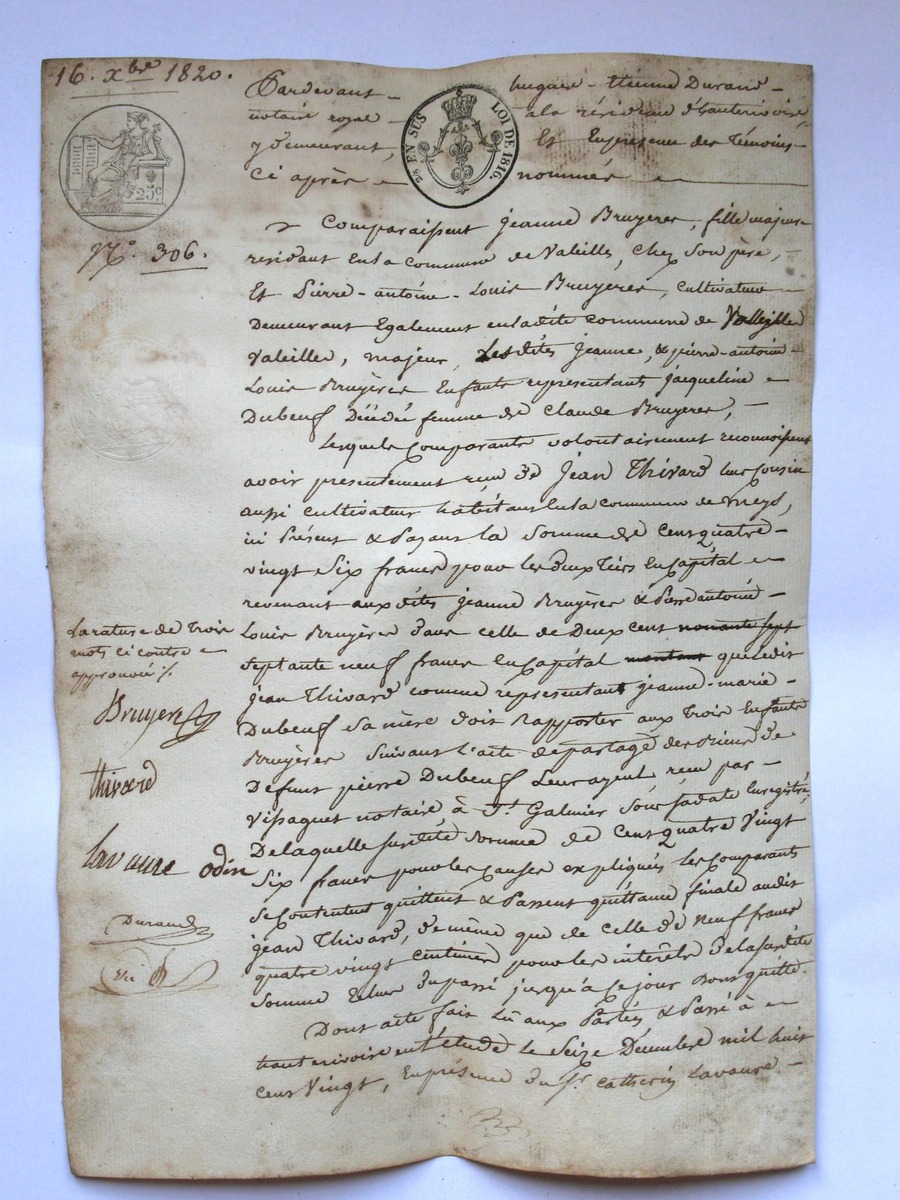 16. xbre 1820.
Pardevant hugues-étienne Durand
notaire royal à la résidence d'hauterivoire,
y demeurant, Et En présence des témoins
Ci après nommés
2/4 EN SUS LOI DE 1816.
25c
No. 306.
Comparaissent jeanne Bruyeres, fille majeure
residant En la commune de Valeille, chez son père,
Et Pierre-antoine-Louis Bruyeres, cultivateur
Demeurant Egalement en ladite commune de
Valeilles, majeur, Lesdites jeanne, & pierre-antoine
Louis Bruyères Enfants representants jacqueline
Dubeuf Décédée femme de Claude Bruyeres,
Lesquels Comparants volontairement reconnoissent
avoir presentement reçu de jean Thivard leur Cousin
aussi cultivateur habitant En la commune de meys,
ici Présent & Payant la somme de Cent quatre
vingt Six francs pour les deux tiers En Capital
revenant auxdites jeanne Bruyères & Pierre antoine
Louis Bruyères dans celle de Deux cent nonante sept
septante neuf francs En Capital montant que ledit
jean Thivard comme representant jeanne-marie
Dubeuf sa mère doit Rapporter aux trois Enfants
Bruyères suivant l'acte de partage des Biens de
Defunt pierre Dubeuf Leur ayeul, reçu par
Vissaguet notaire, à St. Galmier sous sa date Enregistré,
De laquelle susdite somme de Cent quatre Vingt
Six francs pour les Causes expliqués les Comparants
se Contentent quittent & Passent quittance finale audit
jean Thivard, de même que de celle de neuf francs
quatre vingt centimes pour les intérêts de la susdite
somme Echus du passé jusqu'à ce jour Dont quitte.
Dont acte fait Lû aux Parties & Passé à
hauterivoire en l'étude le Seize Décembre mil huit
cent Vingt, En présence du Sr. Catherin Lavaure
La rature de Trois
mots ci contre
approuvée /.
Bruyere
thivard
lavaure odin
Durand